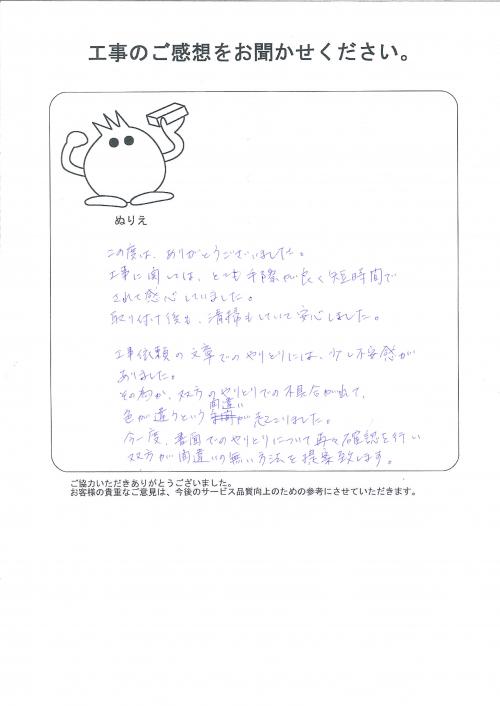 工事のご感想をお聞かせください。
ぬりえ
この度は、ありがとうございました。
工事に関しては、とても手際が良く短時間で
されて感心していました。
取り付け後も、清掃もしていて安心しました。
工事依頼の文章でのやりとりには、少し不安感が
ありました。
そのわか、双方のやりとりでの不具合が出て、
色が違うという間違いが起こりました。
今一度、書面でのやりとりについて再々確認を行い
双方が間違いの無い方法を提案致します。
ご協力いただきありがとうございました。
お客様の貴重なご意見は、今後のサービス品質向上のための参考にさせていただきます。